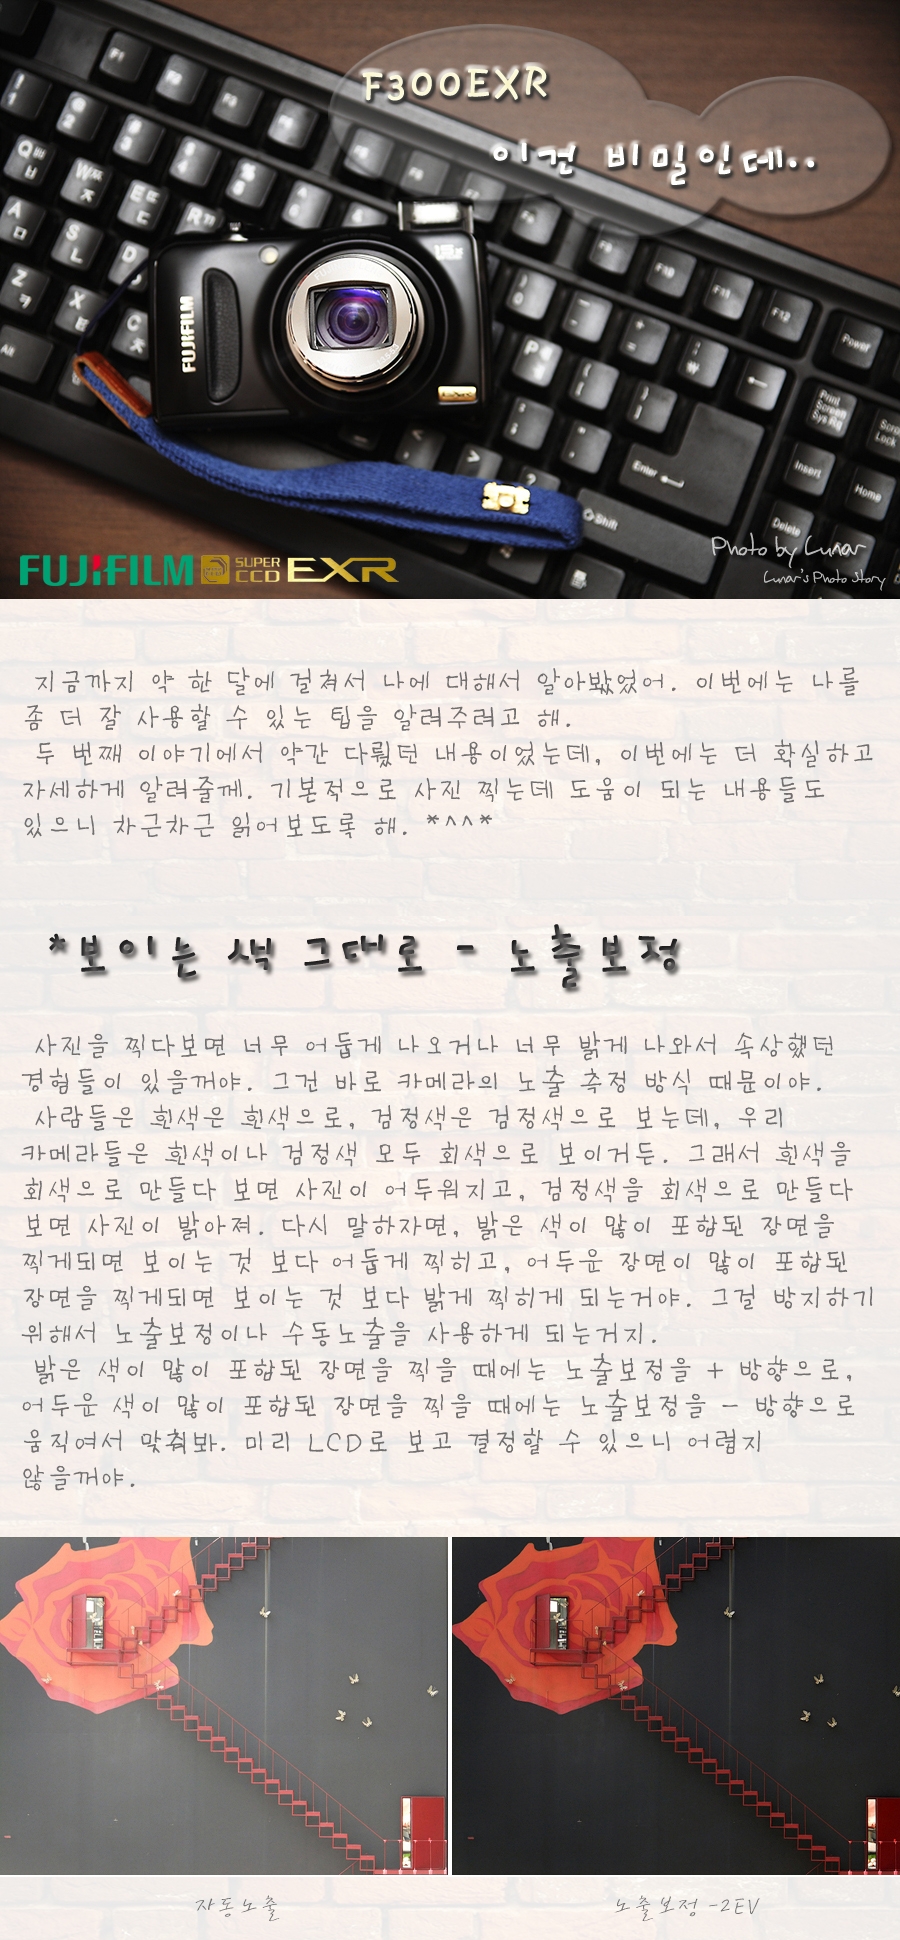 F300EXR
이건 비밀인데..
FUJIFILM
Photo by Lunar
Lunar's Photo Story
FUJIFILM SUPER CCD EXR
지금까지 약 한 달에 걸쳐서 나에 대해서 알아봤었어. 이번에는 나를
좀 더 잘 사용할 수 있는 팁을 알려주려고 해.
두 번째 이야기에서 약간 다뤘던 내용이었는데, 이번에는 더 확실하고
자세하게 알려줄께. 기본적으로 사진 찍는데 도움이 되는 내용들도
있으니 차근차근 읽어보도록 해. *^^*
*보이는 색 그대로 - 노출보정
사진을 찍다보면 너무 어둡게 나오거나 너무 밝게 나와서 속상했던
경험들이 있을꺼야. 그건 바로 카메라의 노출 측정 방식 때문이야.
사람들은 흰색은 흰색으로, 검정색은 검정색으로 보는데, 우리
카메라들은 흰색이나 검정색 모두 회색으로 보이거든. 그래서 흰색을
회색으로 만들다 보면 사진이 어두워지고, 검정색을 회색으로 만들다
보면 사진이 밝아져. 다시 말하자면, 밝은 색이 많이 포함된 장면을
찍게되면 보이는 것 보다 어둡게 찍히고, 어두운 장면이 많이 포함된
장면을 찍게되면 보이는 것 보다 밝게 찍히게 되는거야. 그걸 방지하기
위해서 노출보정이나 수동노출을 사용하게 되는거지.
밝은 색이 많이 포함된 장면을 찍을 때에는 노출보정을 + 방향으로,
어두운 색이 많이 포함된 장면을 찍을 때에는 노출보정을 - 방향으로
움직여서 맞춰봐. 미리 LCD로 보고 결정할 수 있으니 어렵지
않을꺼야.
자동노출
노출보정 -2EV